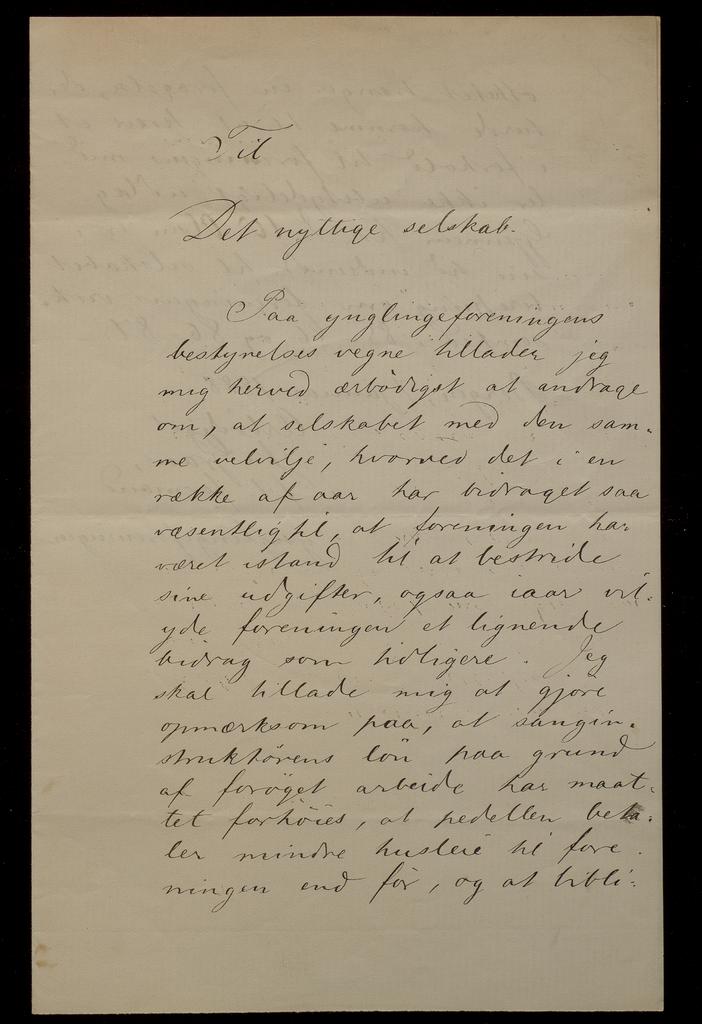 Til
Det nyttige selskab.
Paa ynglingeforeningens
bestyrelses vegne tillader jeg
mig herved ærbödigst at andrage
om, at selskabet med den sam-
me velvilje, hvorved det i en
række af aar har bidraget saa
væsentlig til, at foreningen har
været istand til at bestride
sine udgifter, ogsaa iaar vil
yde foreningen et lignende
bidrag som tidligere. Jeg
skal tillade mig at gjöre
opmærksom paa, at sangin-
struktörens lön paa grund
af foröget arbeide har maat-
tet forhöies, at pedellen beta-
ler mindre husleie til fore-
ningen end för, og at bibli-